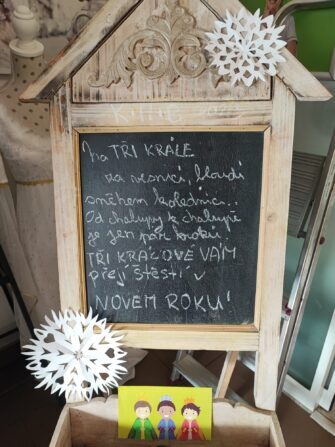 Na TŘI KRÁLE
za vesnicí, bloudí
sněhem koledníci..
Od chalupy k chalupě
je jen pár kroků..
TŘI KRÁLOVÉ VÁM
přejí štěstí v
NOVÉM ROKU!